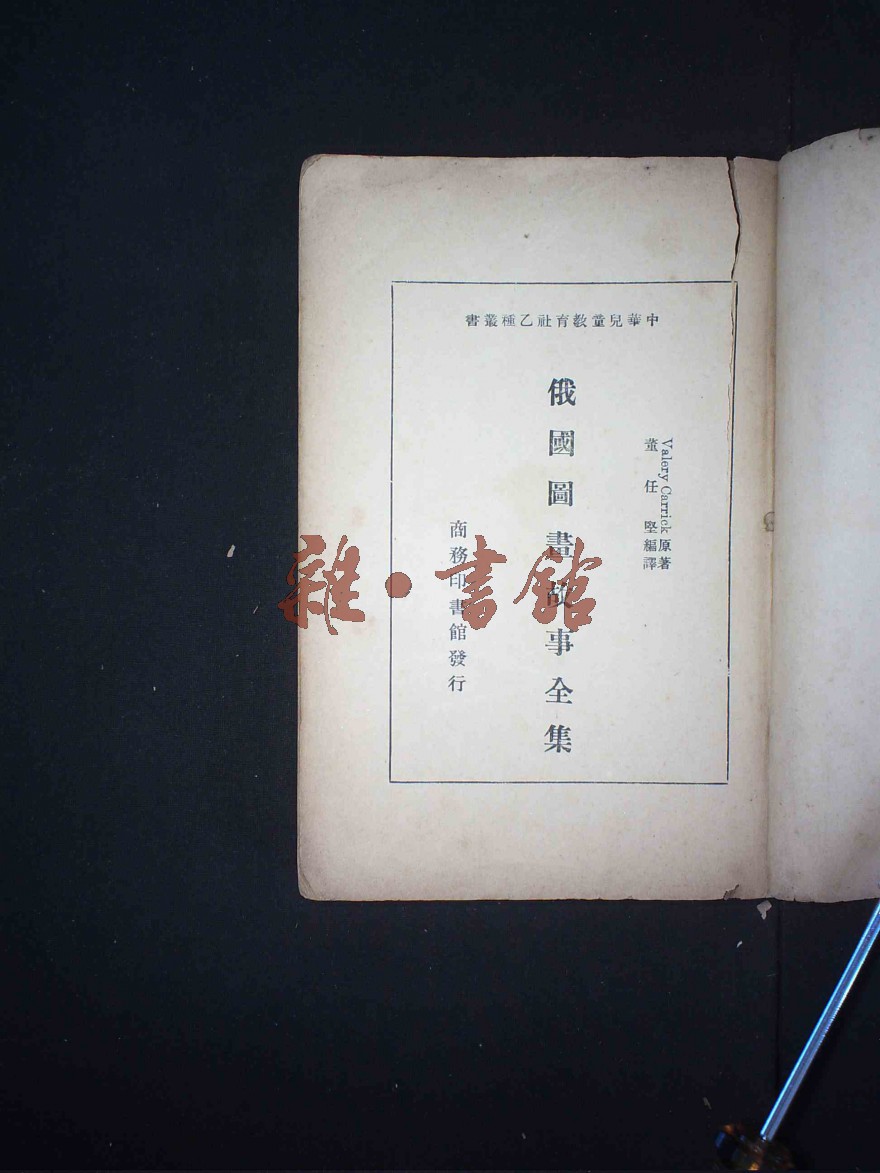 中華兒童教育社乙種叢書
Valery Carrick 原著
董任堅編譯
俄國圖畫故事全集
商務印書館發行
雜·書館